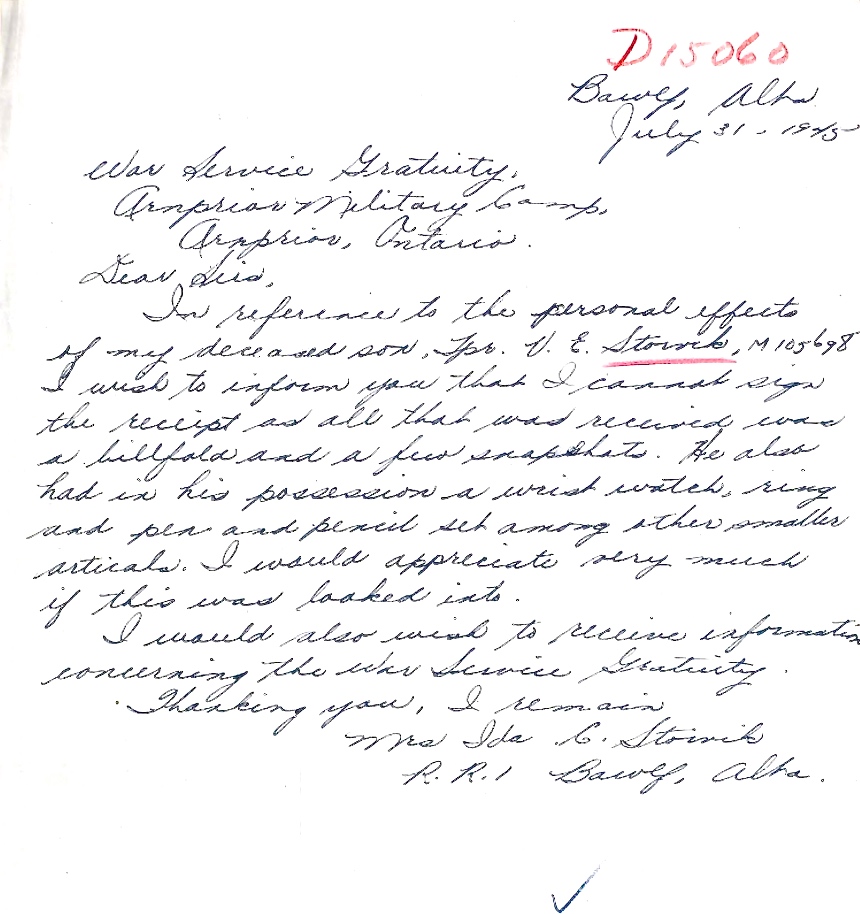 D 15060
Bawlf, Alta.
July 31 - 1945
War Service Gratuity,
Arnprior Military Camp,
Arnprior, Ontario.
Dear Sirs,
In reference to the personal effects
of my deceased son, Tpr. V. E. Stowik, M 105698
I wish to inform you that I cannot sign
the receipt as all that was received was
a billfold and a few snapshots. He also
had in his possession a wrist watch, ring
and pen and pencil set among other smaller
articals. I would appreciate very much
if this was looked into.
I would also wish to receive information
concerning the War Service Gratuity.
Thanking you, I remain
Mrs Ida C. Stoivik
R.R.1 Bawlf, Alta.